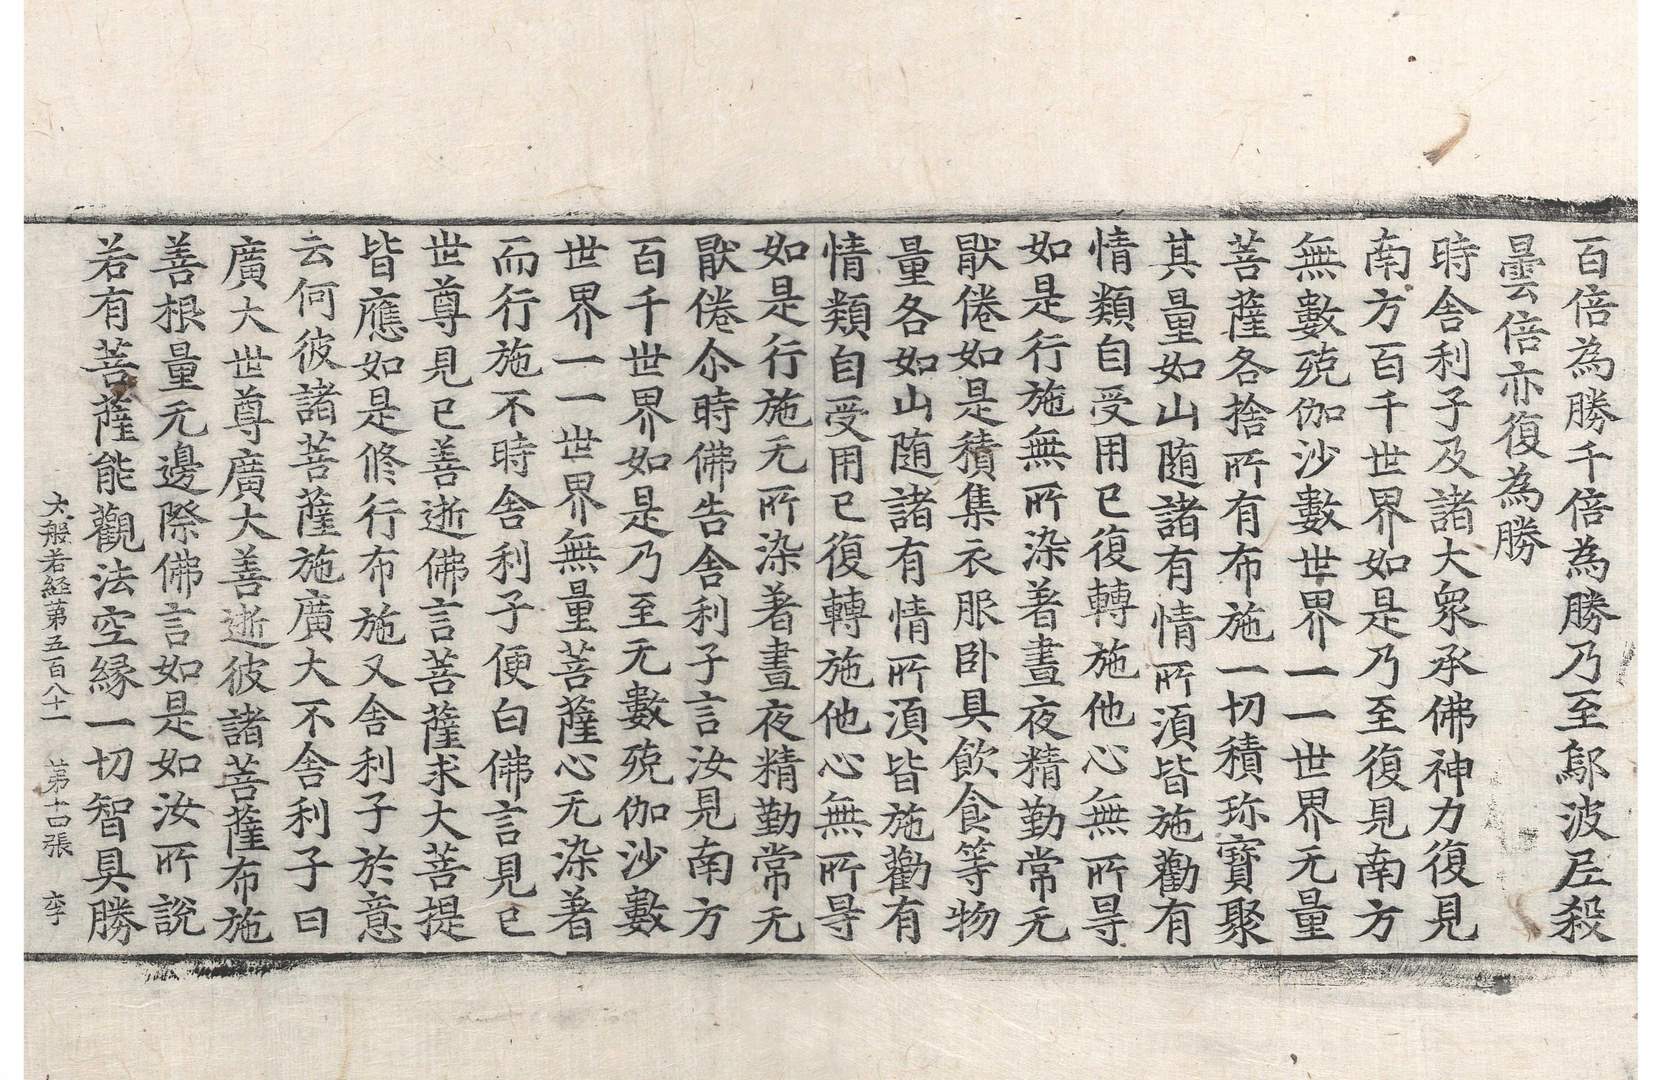 百倍為勝千倍為勝乃至鄔波尼殺
曇倍亦復為勝
時舍利子及諸大衆承佛神力復見
南方百千世界如是乃至復見南方
無數殑伽沙數世界一一世界无量
菩薩各捨所有布施一切積珎寶聚
其量如山随諸有情所湏皆施勸有
情類自受用已復轉施他心無所㝵
如是行施無所染著晝夜精勤常无
猒倦如是積集衣服卧具飲食等物
量各如山随諸有情所湏皆施勸有
情類自受用已復轉施他心無所㝵
如是行施无所染著晝夜精勤常无
猒倦尒時佛告舍利子言汝見南方
百千世界如是乃至无數殑伽沙數
世界一一世界無量菩薩心无染著
而行施不時舍利子便白佛言見已
世尊見已善逝佛言菩薩求大菩提
皆應如是修行布施又舍利子於意
云何彼諸菩薩施廣大不舍利子曰
廣大世尊廣大善逝彼諸菩薩布施
善根量无邊際佛言如是如汝所說
若有菩薩能觀法空縁一切智具勝
大般若経第五百八十一 第十四張 李